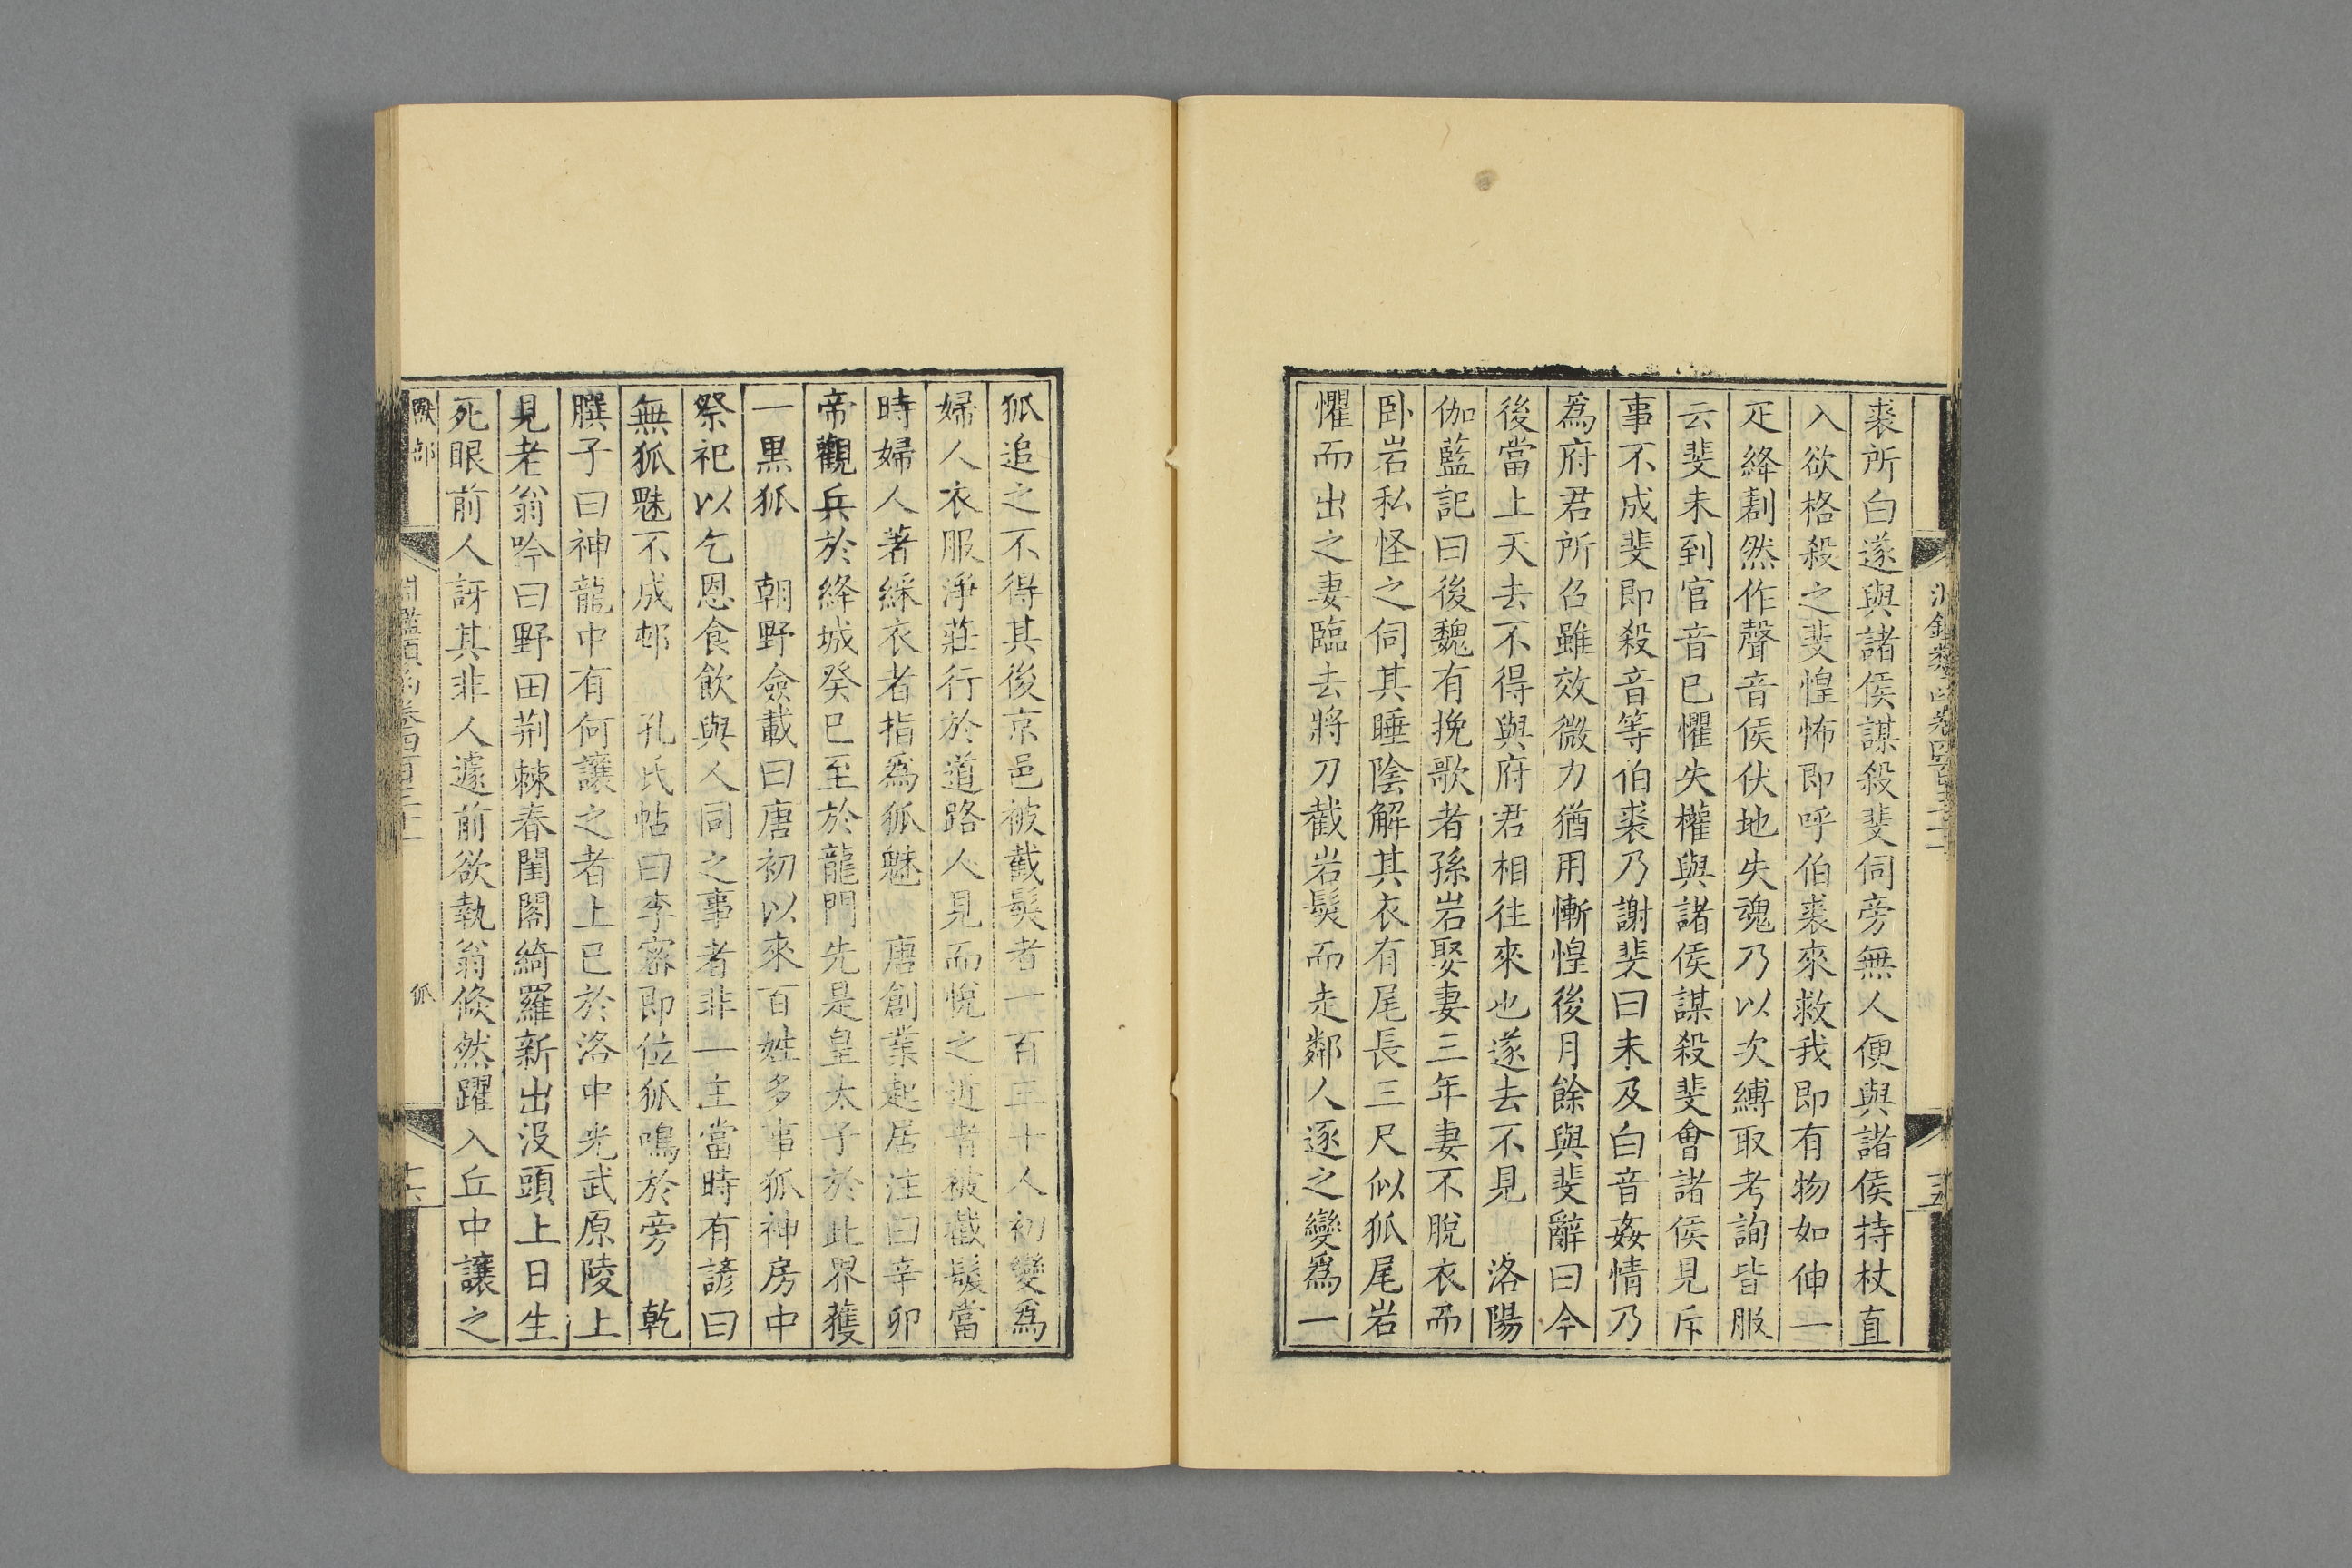 裘所白遂與諸侯謀殺斐伺旁無人便與諸侯持杖直
入欲格殺之斐惶怖即呼伯裘來救我即有物如伸一
疋絳剨然作聲音侯伏地失魂乃以次縛取考詢皆服
云斐未到官音已懼失權與諸侯謀殺斐會諸侯見斥
事不成斐即殺音等伯裘乃謝斐曰未及白音姦情乃
爲府君所召雖效微力猶用慚惶後月餘與斐辭曰今
後當上天去不得與府君相往來也遂去不見 洛陽
伽藍記曰後魏有挽歌者孫岩娶妻三年妻不脫衣而
卧岩私怪之伺其睡陰解其衣有尾長三尺似狐尾岩
懼而出之妻臨去將刀截岩髮而走鄰人逐之變爲一
狐追之不得其後京邑被截髮者一百三十人初變爲
婦人衣服淨莊行於道路人見而悅之近者被截髮當
時婦人著綵衣者指爲狐魅 唐創業起居注曰辛卯
帝觀兵於絳城癸巳至於龍門先是皇太子於此界獲
一黒狐 朝野僉載曰唐初以來百姓多事狐神房中
祭祀以乞恩食飲與人同之事者非一主當時有諺曰
無狐魅不成邨 孔氏帖曰李密即位狐鳴於旁 乾
𦠆子曰神龍中有何讓之者上巳於洛中光武原陵上
見老翁吟曰野田荆棘春閨閣綺羅新出沒頭上日生
死眼前人訝其非人遽前欲執翁倐然躍入丘中讓之
獸部 淵鑑類函卷四百三十一 狐 十六